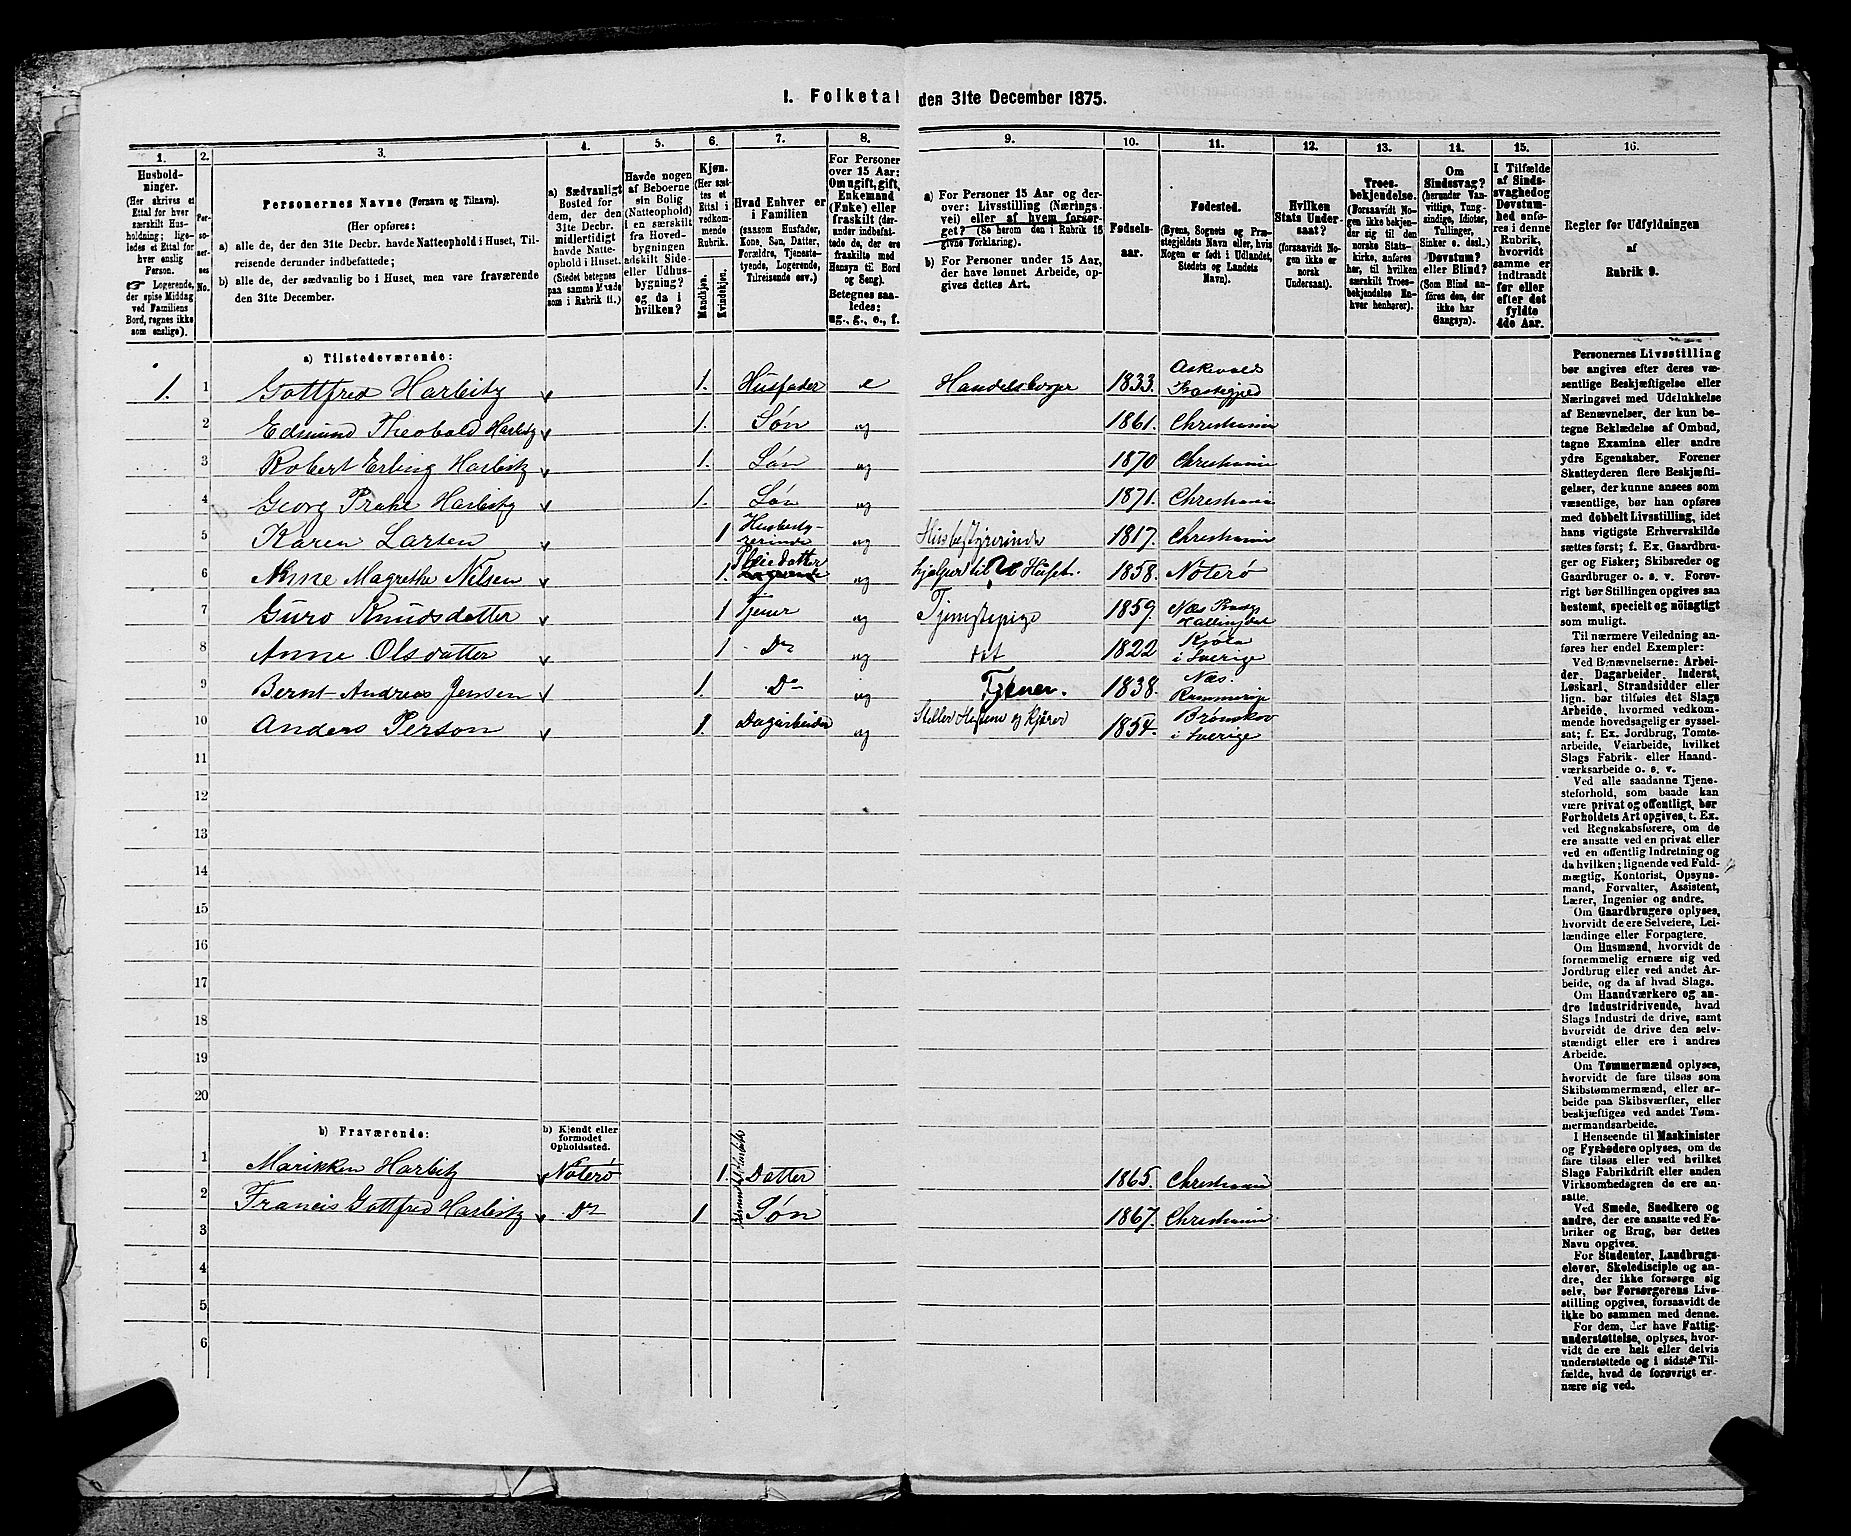 I. Folketal den 31te December 1875.
1.
2.
3.
4.
5.
6.
7.
8.
9.
10.
11.
12.
13.
14.
15.
16.
Husholdninger.
(Her skrives et Ettal for hver særskilt Husholdning; ligeledes et Ettal for hver enslig Person.
☞ Logerende, der spise Middag ved Familiens Bord, regnes ikke som enslige).
Personernes No.
Personernes Navne (Fornavn og Tilnavn).
(Her opføres:
a) alle de, der den 31te Decbr. havde Natteophold i Huset, Tilreisende derunder indbefattede;
b) alle de, der sædvanlig bo i Huset, men vare fraværende den 31te December.
a) Sædvanligt Bosted for dem, der den 31te Decbr. midlertidigt havde Natteophold i Huset. (Stedet betegnes paa samme Maade som i Rubrik 11.)
Havde nogen af Beboerne sin Bolig (Natteophold) i en særskilt fra Hovedbygningen adskilt Side- eller Udhusbygning? og da i hvilken?
Kjøn.
(Her sættes et Ettal i vedkommende Rubrik.
Mandkjøn.
Kvindekjøn.
Hvad Enhver er i Familien
(saasom Husfader, Kone, Søn, Datter, Forældre, Tjenestetyende, Logerende, Tilreisende osv.)
For Personer over 15 Aar: Om ugift, gift, Enkemand (Enke) eller fraskilt (derunder indbefattede de, der ere fraskilte med Hensyn til Bord og Seng).
Betegnes saaledes: ug., g., e., f.
a) For Personer 15 Aar og derover: Livsstilling (Næringsvei) eller af hvem forsørget? (Se herom den i Rubrik 16 givne Forklaring).
b) For Personer under 15 Aar, der have lønnet Arbeide, opgives dettes Art.
Fødselsaar.
Fødested.
(Byens, Sognets og Præstegjeldets Navn eller, hvis Nogen er født i Udlandet, Stedets og Landets Navn).
Hvilken Stats Undersaat?
(forsaavidt Nogen ikke er norsk Undersaat).
Troesbekjendelse.
(Forsaavidt Nogen ikke bekjender sig til den norske Statskirke, anføres her, til hvilken særskilt Troesbekjendelse Enhver henhører).
Om Sindssvag? (herunder Vanvittige, Tungsindige, Idioter, Tullinger, Sinker o. desl.) Døvstum? eller Blind? (Som Blind anføres den, der ikke har Gangsyn).
I Tilfælde af Sindssvaghed og Døvstumhed anføres i denne Rubrik, hvorvidt samme er indtraadt før eller efter det fyldte 4de Aar.
Regler for Udfyldningen af Rubrik 9.
a) Tilstedeværende:
1. 1 Gottfred Harbitz v 1. Husfader e Handelsborger 1833. Askvold Præstegjeld
2 Edmund Theobald Harbitz v 1. Søn ug 1861. Christiania
3 Robert Erling Harbitz v 1. Søn ug 1870 Christiania
4 Georg Prahl Harbitz v 1. Søn ug 1871. Christiania
5 Karen Larsen v 1 Husbestyrerinde ug Husbestyrerinde 1817. Christiania
6 Anne Magrethe Nilsen v 1. Pleiedatter ug hjælper til i Huset. 1858. Nøterø
7 Guro Knudsdatter v 1 Tjener ug Tjenestepige 1859. Næs Hallingdal
8 Anne Olsdatter v 1 Do ug dit 1822 i Sverige
9 Bernt Andreas Jensen v 1. Do ug Tjener. 1838. Næs. Rommerige
10 Anders Person v 1. Dagarbeider ug Steller Hestene og kjører 1854. Brønskov i Sverige
11
12
13
14
15
16
17
18
19
20
b) Fraværende:
b) Kjendt eller formodet Opholdssted.
1 Marikken Harbitz v Nøterø 1. Datter 1865. Christiania
2 Francis Gottfred Harbitz v Do 1 Søn 1867. Christiania
3
4
5
6
Personernes Livsstilling
bør angives efter deres væ-
sentlige Beskjæftigelse eller
Næringsvei med Udelukkelse
af Benævnelser, der kun be-
tegne Beklædelse af Ombud,
tagne Examina eller andre
ydre Egenskaber. Forener
Skatteyderen flere Beskjæfti-
gelser, der kunne ansees som
væsentlige, bør han opføres
med dobbelt Livsstilling, idet
hans vigtigste Erhvervskilde
sættes først; f. Ex. Gaardbru-
ger og Fisker; Skibsreder og
Gaardbruger o. s. v. Forøv-
rigt bør Stillingen opgives saa
bestemt, specielt og nøiagtigt
som muligt.
Til nærmere Veiledning an-
føres her endel Exempler:
Ved Benævnelserne: Arbei-
der, Dagarbeider, Inderst,
Løskarl, Strandsidder eller
lign. bør tilføies det Slags
Arbeide, hvormed vedkom-
mende hovedsagelig er syssel-
sat; f. Ex. Jordbrug, Tomte-
arbeide, Veiarbeide, hvilket
Slags Fabrik- eller Haand-
værksarbeide o. s. v.
Ved alle saadanne Tjene-
steforhold, som baade kan
være privat og offentligt, bør
Forholdets Art opgives, t. Ex.
ved Regnskabsførere, om de
ere ansatte ved en privat eller
ved en offentlig Indretning og
da hvilken; lignende ved Fuld-
mægtig, Kontorist, Opsyns-
mand, Forvalter, Assistent,
Lærer, Ingeniør og andre.
Om Gaardbrugere oplyses,
hvorvidt de ere Selveiere, Lei-
lændinge eller Forpagtere.
Om Husmænd, hvorvidt de
fornemmelig ernære sig ved
Jordbrug eller ved andet Ar-
beide, og da af hvad Slags.
Om Haandværkere og an-
dre Industridrivende, hvad
Slags Industri de drive, samt
hvorvidt de drive den selv-
stændigt eller ere i andres
Arbeide.
Om Tømmermænd oplyses,
hvorvidt de fare tilsøs som
Skibstømmermænd, eller ar-
beide paa Skibsværfter, eller
beskjæftiges ved andet Tøm-
mermandsarbeide.
I Henseende til Maskinister
og Fyrbødere oplyses, om de
fare tilsøs eller ved hvilket
Slags Fabrikdrift eller anden
Virksomhedsgren de ere an-
satte.
Ved Smede, Snedkere og
andre, der ere ansatte ved Fa-
briker og Brug, bør dettes
Navn opgives.
For Studenter, Landbrugs-
elever, Skoledisciple og an-
dre, der ikke forsørge sig
selv, bør Forsørgerens Livs-
stilling opgives, forsaavidt de
ikke bo sammen med denne.
For dem, der have Fattig-
understøttelse, oplyses, hvor-
vidt de ere helt eller delvis
understøttede og i sidste Til-
fælde, hvad de forøvrigt er-
nære sig ved.